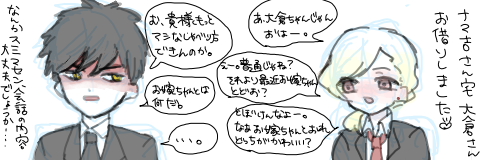 ナマ吉さん宅 大倉さん
お借りしました
あ、大倉ちゃんじゃん
おはー。
お、貴様、もっと
マシなしゃべり方
できんのか。
えー。普通じゃね?
それより最近お嫁ちゃん
とどお?
お嫁ちゃんとは
何だ。
とぼけんなよー。
なあお嫁ちゃんとおれ
どっちがかわいい?
・・・。
なんかスミマセン会話の内容
大丈夫でしょうか…